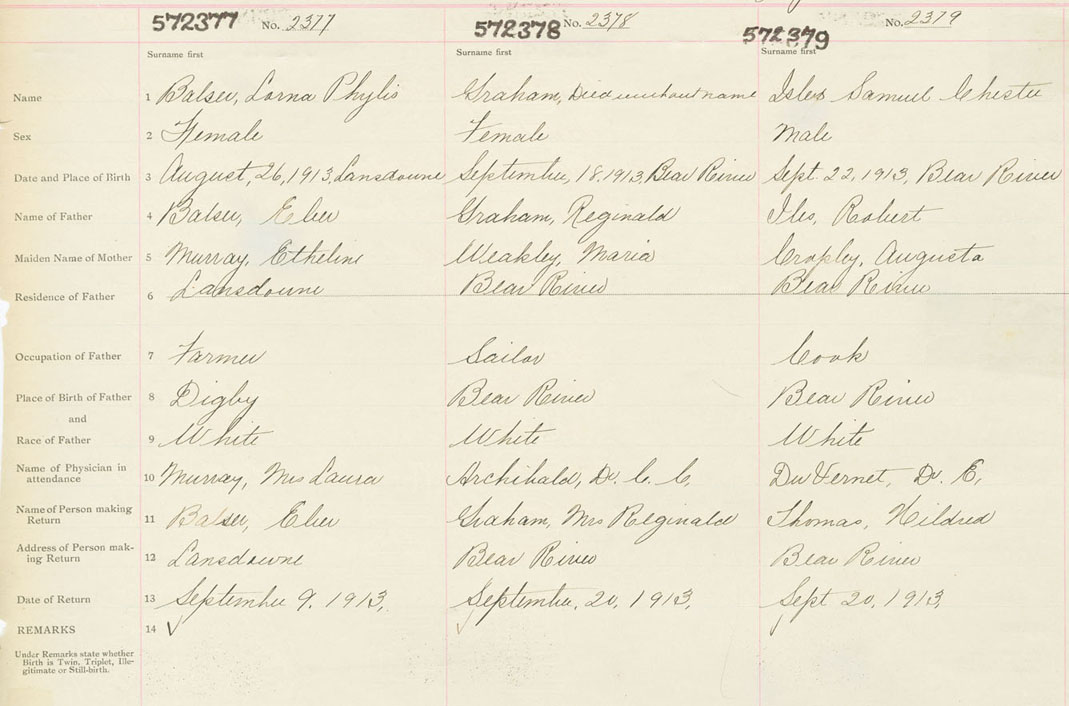 572377 No. 2377 572378 No. 2378 572379 No. 2379
Surname first Surname first Surname first
Name 1 Balser, Lorna Phylis Graham, Died without name Isles Samuel Chester
Sex 2 Female Female Male
Date and Place of Birth 3 August, 26, 1913, Lansdowne September, 18, 1913, Bear River Sept. 22, 1913, Bear River
Name of Father 4 Balser, Eber Graham, Reginald Iles, Robert
Maiden Name of Mother 5 Murray, Etheline Weakley, Maria Cropley, Augusta
Residence of Father 6 Lansdowne Bear River Bear River
Occupation of Father 7 Farmer Sailor Cook
Place of Birth of Father 8 Digby Bear River Bear River
and
Race of Father 9 White White White
Name of Physician in
attendance 10 Murray, Mrs Laura Archibald, Dr. C. C. DuVernet, Dr. E.
Name of Person making
Return 11 Balser, Eber Graham, Mrs Reginald Thomas, Hildred
Address of Person mak-
ing Return 12 Lansdowne Bear River Bear River
Date of Return 13 September 9, 1913, September, 20, 1913, Sept 20, 1913,
REMARKS 14 √
Under Remarks state whether
Birth is Twin, Triplet, Ille-
gitimate or Still-birth.